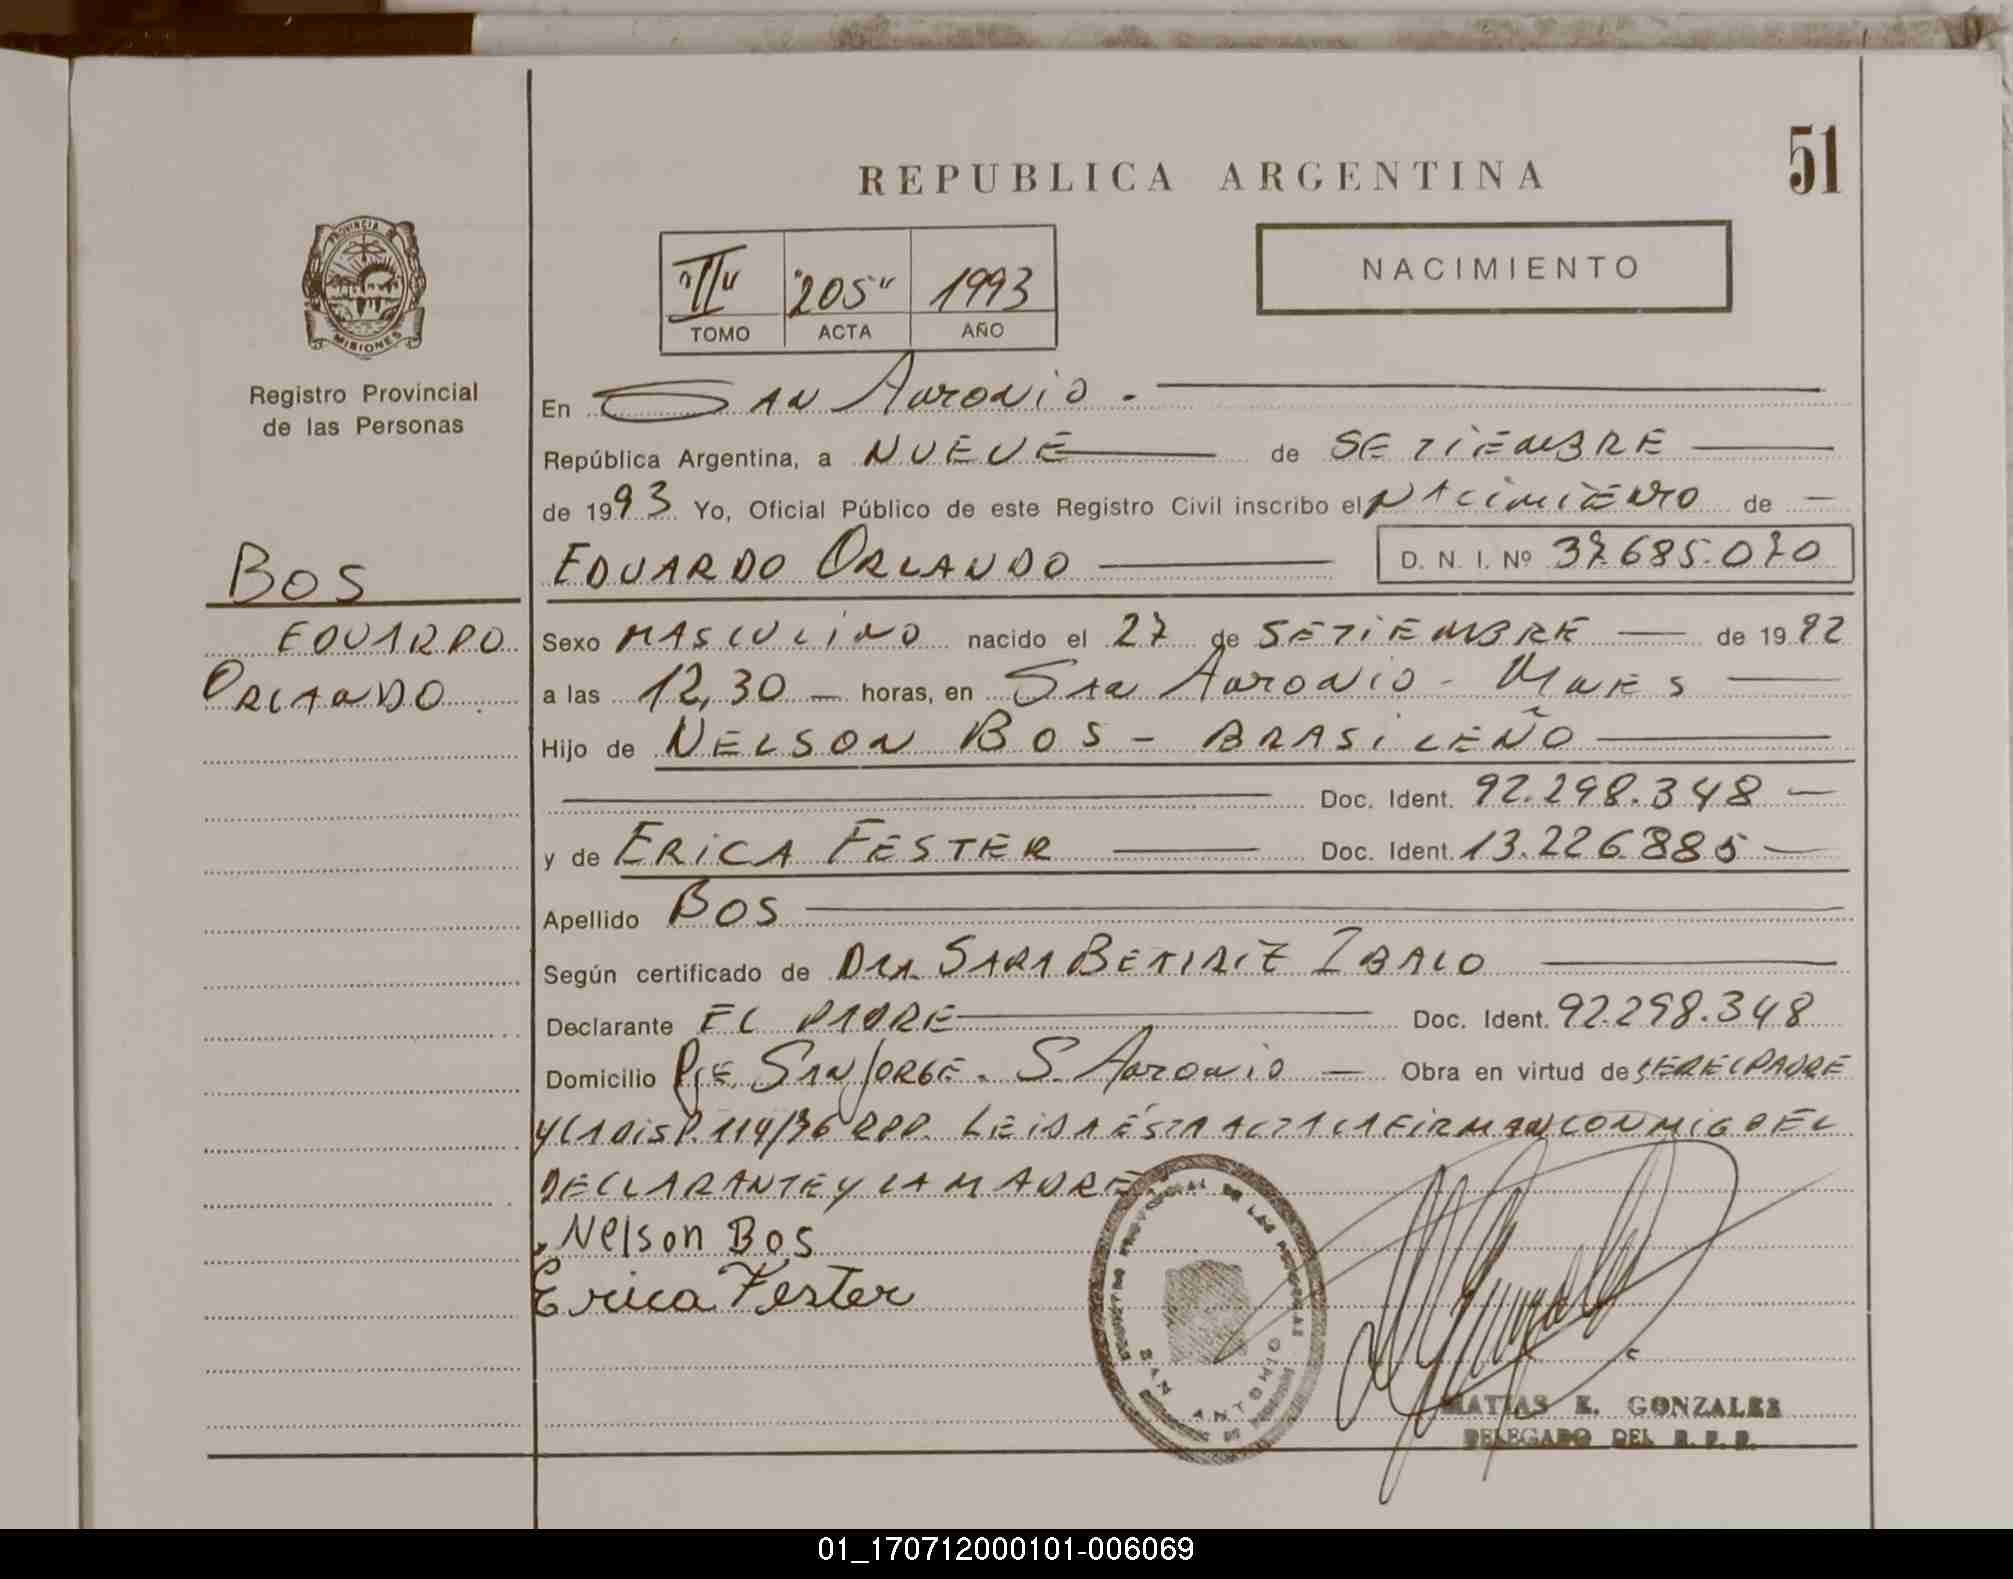 REPUBLICA ARGENTINA
51
PROVINCIA DE
MISIONES
Registro Provincial
de las Personas
"II" "205" 1993
TOMO ACTA AÑO
NACIMIENTO
En San Antonio.
República Argentina, a NUEVE de SETIEMBRE
de 1993 Yo, Oficial Público de este Registro Civil inscribo el NACIMIENTO de
BOS
EDUARDO ORLANDO D. N. I. Nº 37.685.070
EDUARDO
ORLANDO.
Sexo MASCULINO nacido el 27 de SETIEMBRE de 1992
a las 12,30 horas, en SAN ANTONIO - Mnes
Hijo de NELSON BOS - BRASILEÑO
Doc. Ident. 92.298.348
y de ERICA FESTER Doc. Ident. 13.226.885
Apellido BOS
Según certificado de DRA. SARA BEATRIZ IBALO
Declarante EL PADRE Doc. Ident. 92.298.348
Domicilio Pje. SAN JORGE. S. ANTONIO Obra en virtud de SER EL PADRE
Y LA DISP. 114/36 RPP. LEIDA ÉSTA ACTA LA FIRMAN CONMIGO EL
DECLARANTE Y LA MADRE
Nelson Bos
Erica Fester
REGISTRO PROVINCIAL DE LAS PERSONAS
SAN ANTONIO
MATIAS E. GONZALES
DELEGADO DEL R. P. P.
01_170712000101-006069